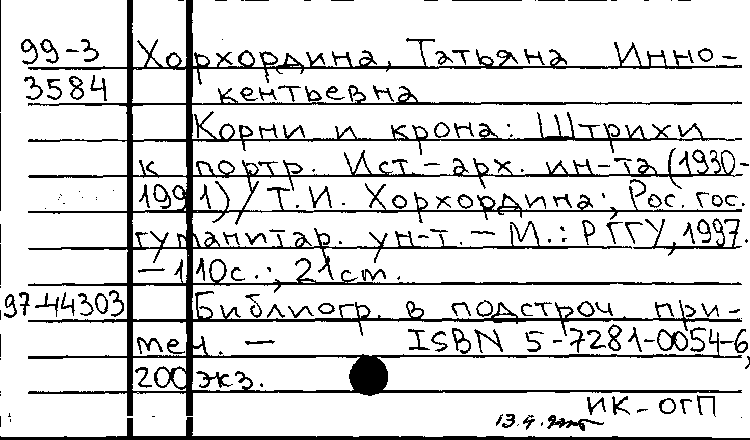 99-3 Хорхордина, Татьяна Инно-
3584 кентьевна
Корни и крона: Штрихи
к портр. Ист.-арх. ин-та (1930-
1991) / Т.И. Хорхордина; Рос. гос.
гуманитар. ун-т. - М.: РГГУ, 1997.
- 110с.; 21см.
97-44303 Библиогр. в подстроч. при-
меч. - ISBN 5-7281-0054-6,
200 экз.
ИК-ОГП
13.4.